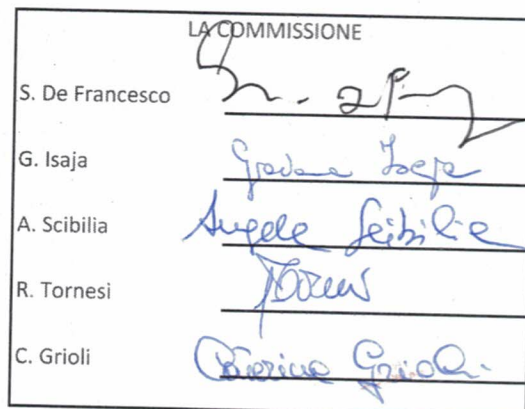 LA COMMISSIONE
S. De Francesco
G. Isaja
A. Scibilia Angela Scibilia
R. Tornesi
C. Grioli Caterina Grioli